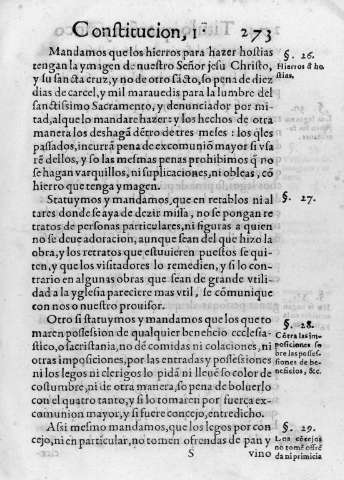 Constitucion, 1ª 273
Mandamos que los hierros para hazer hostias
tengan la ymagen de nuestro Señor jesu Christo,
y su sancta cruz, y no de otro sãcto, so pena de diez
dias de carcel, y mil marauedis para la lumbre del
sanctissimo Sacramento, y denunciador por mi-
tad, al que lo mandare hazer: y los hechos de otra
manera los deshagã dẽtro de tres meses: los q̃les
passados, incurrã pena de excomuniõ mayor si vsa
rẽ dellos, y so las mesmas penas prohibimos q̃ no
se hagan varquillos, ni suplicaciones, ni obleas, cõ
hierro que tenga ymagen.
§. 26.
Hierros d̃ ho
stias.
Statuymos y mandamos, que en retablos ni al
tares donde se aya de dezir missa, no se pongan re
tratos de personas particulares, ni figuras a quien
no se deue adoracion, aunque sean del que hizo la
obra, y los retratos que estuuieren puestos se qui-
ten, y que los visitadores lo remedien, y si lo con-
trario en algunas obras que sean de grande vtili-
dad a la yglesia pareciere mas vtil, se cõmunique
con nos o nuestro prouisor.
§. 27.
Otro si statuymos y mandamos que los que to
maren possession de qualquier beneficio ecclesia-
stico, o sacristania, no dẽ comidas ni colaciones, ni
otras imposiciones, por las entradas y possessiones
ni los legos ni clerigos lo pidã ni lleuẽ so color de
costumbre, ni de otra manera, so pena de boluerlo
con el quatro tanto, y si lo tomaren por fuerca ex-
comunion mayor, y si fuere concejo, entredicho.
§. 28.
Cõtra las im-
posiciones so
bre las posses-
siones de be-
neficios, &c.
Assi mesmo mandamos, que los legos por con
cejo, ni en particular, no tomen ofrendas de pan y
§. 29.
Los cõcejos
no tomẽ ofrẽ
da ni primicia
S vino